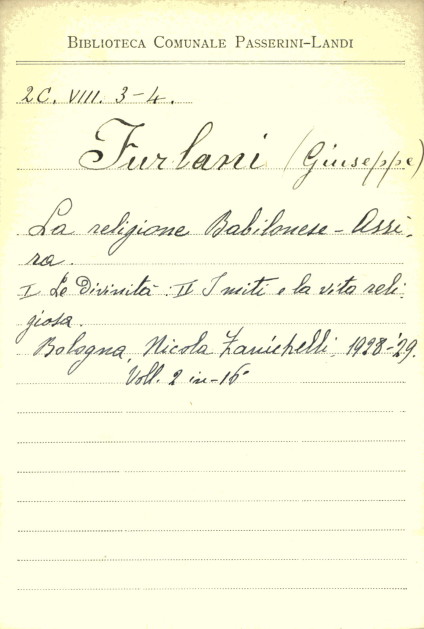 BIBLIOTECA COMUNALE PASSERINI-LANDI
2C. VIII. 3-4.
Furlani (Giuseppe)
La religione Babilonese - Assi-
ra.
I Le Divinità : II I miti e la vita reli-
giosa.
Bologna, Nicola Zanichelli, 1928-'29.
Voll. 2 in-16°